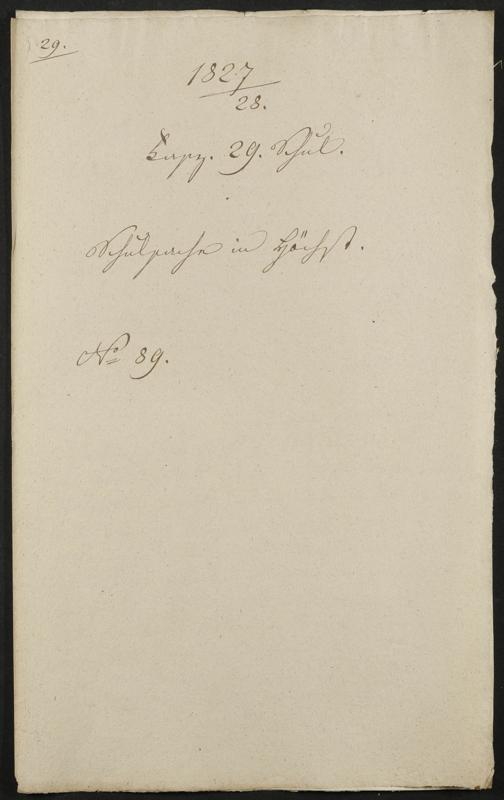 29.
1827
28.
Karz. 29. Schul.
Schulsache in Höchst.
No 89.